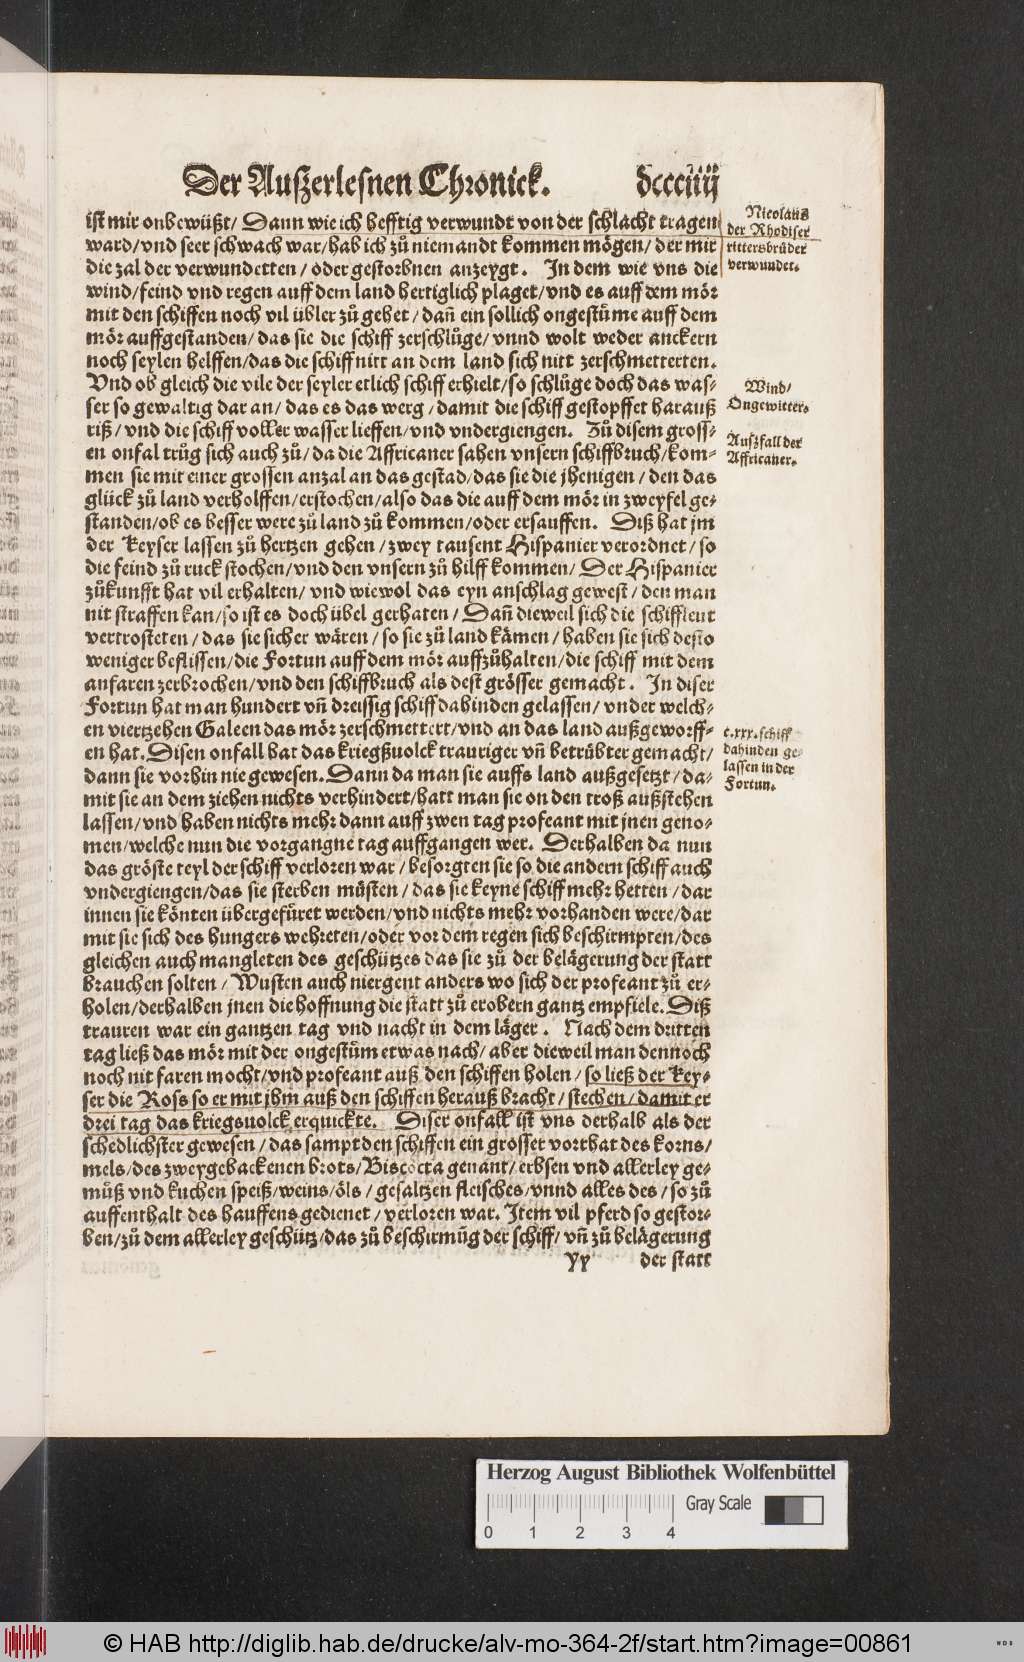 Der Außerlesnen Chronick. dcccciiij
ist mir onbewüßt/ Dann wie ich hefftig verwundt von der schlacht tragen
ward/vnd seer schwach war/hab ich zů niemandt kommen mögen/der mir
die zal der verwundetten/oder gestorbnen anzeygt. In dem wie vns die
wind/feind vnd regen auff dem land hertiglich plaget/vnd es auff dem mör
mit den schiffen noch vil übler zů gehet/dañ ein sollich ongestůme auff dem
mör auffgestanden/das sie die schiff zerschlůge/vnnd wolt weder anckern
noch seylen helffen/das die schiff nitt an dem land sich nitt zerschmetterten.
Vnd ob gleich die vile der seyler etlich schiff erhielt/so schlůge doch das was-
ser so gewaltig dar an/das es das werg/damit die schiff gestopffet harauß
riß/vnd die schiff voller wasser lieffen/vnd vndergiengen. Zů disem gross-
en onfal trůg sich auch zů/da die Affricaner sahen vnsern schiffbruch/kom-
men sie mit einer grossen anzal an das gestad/das sie die jhenigen/den das
glück zů land verholffen/erstochen/also das die auff dem mör in zweyfel ge-
standen/ob es besser were zů land zů kommen/oder ersauffen. Diß hat jm
der Keyser lassen zů hertzen gehen/zwey tausent Hispanier verordnet/so
die feind zů ruck stochen/vnd den vnsern zů hilff kommen/Der Hispanier
zůkunfft hat vil erhalten/vnd wiewol das eyn anschlag gewest/den man
nit straffen kan/so ist es doch übel gerhaten/Dañ dieweil sich die schiffleut
vertrosteten/das sie sicher wären/so sie zů land kämen/haben sie sich desto
weniger beflissen/die Fortun auff dem mör auffzůhalten/die schiff mit dem
anfaren zerbrochen/vnd den schiffbruch als dest grösser gemacht. In diser
Fortun hat man hundert vñ dreissig schiff dahinden gelassen/vnder welch-
en viertzehen Galeen das mör zerschmettert/vnd an das land außgeworff-
en hat. Disen onfall hat das kriegßuolck trauriger vñ betrübter gemacht/
dann sie vorhin nie gewesen. Dann da man sie auffs land außgesetzt/da-
mit sie an dem ziehen nichts verhindert/hatt man sie on den troß außstehen
lassen/vnd haben nichts mehr dann auff zwen tag profeant mit jnen geno-
men/welche nun die vorgangne tag auffgangen wer. Derhalben da nun
das gröste teyl der schiff verloren war/besorgten sie so die andern schiff auch
vndergiengen/das sie sterben müsten/das sie keyne schiff mehr hetten/dar
innen sie könten übergefüret werden/vnd nichts mehr vorhanden were/dar
mit sie sich des hungers wehreten/oder vor dem regen sich beschirmpten/des
gleichen auch mangleten des geschützes das sie zů der belägerung der statt
brauchen solten/Wusten auch niergent anders wo sich der profeant zů er-
holen/derhalben jnen die hoffnung die statt zů erobern gantz empfiele. Diß
trauren war ein gantzen tag vnd nacht in dem läger. Nach dem dritten
tag ließ das mör mit der ongestům etwas nach/aber dieweil man dennoch
noch nit faren mocht/vnd profeant auß den schiffen holen/so ließ der Key-
ser die Ross so er mit ihm auß den schiffen herauß bracht/stechen/damit er
drei tag das kriegsuolck erquickte. Diser onfall ist vns derhalb als der
schedlichster gewesen/das sampt den schiffen ein grosser vorrhat des korns/
mels/des zweygebackenen brots/Biscocta genant/erbsen vnd allerley ge-
můß vnd kuchen speiß/weins/öls/gesaltzen fleisches/vnnd alles des/so zů
auffenthalt des hauffens gedienet/verloren war. Item vil pferd so gestor-
ben/zů dem allerley geschütz/das zů beschirmũg der schiff/vñ zů belägerung
yy der statt
Nicolaus
der Rhodiser
rittersbrůder
verwundet.
Wind/
Ongewitter.
Außfall der
Affricaner.
c.xxx.schiff
dahinden ge-
lassen in der
Fortun.
Herzog August Bibliothek Wolfenbüttel
Gray Scale
0 1 2 3 4
© HAB http://diglib.hab.de/drucke/alv-mo-364-2f/start.htm?image=00861